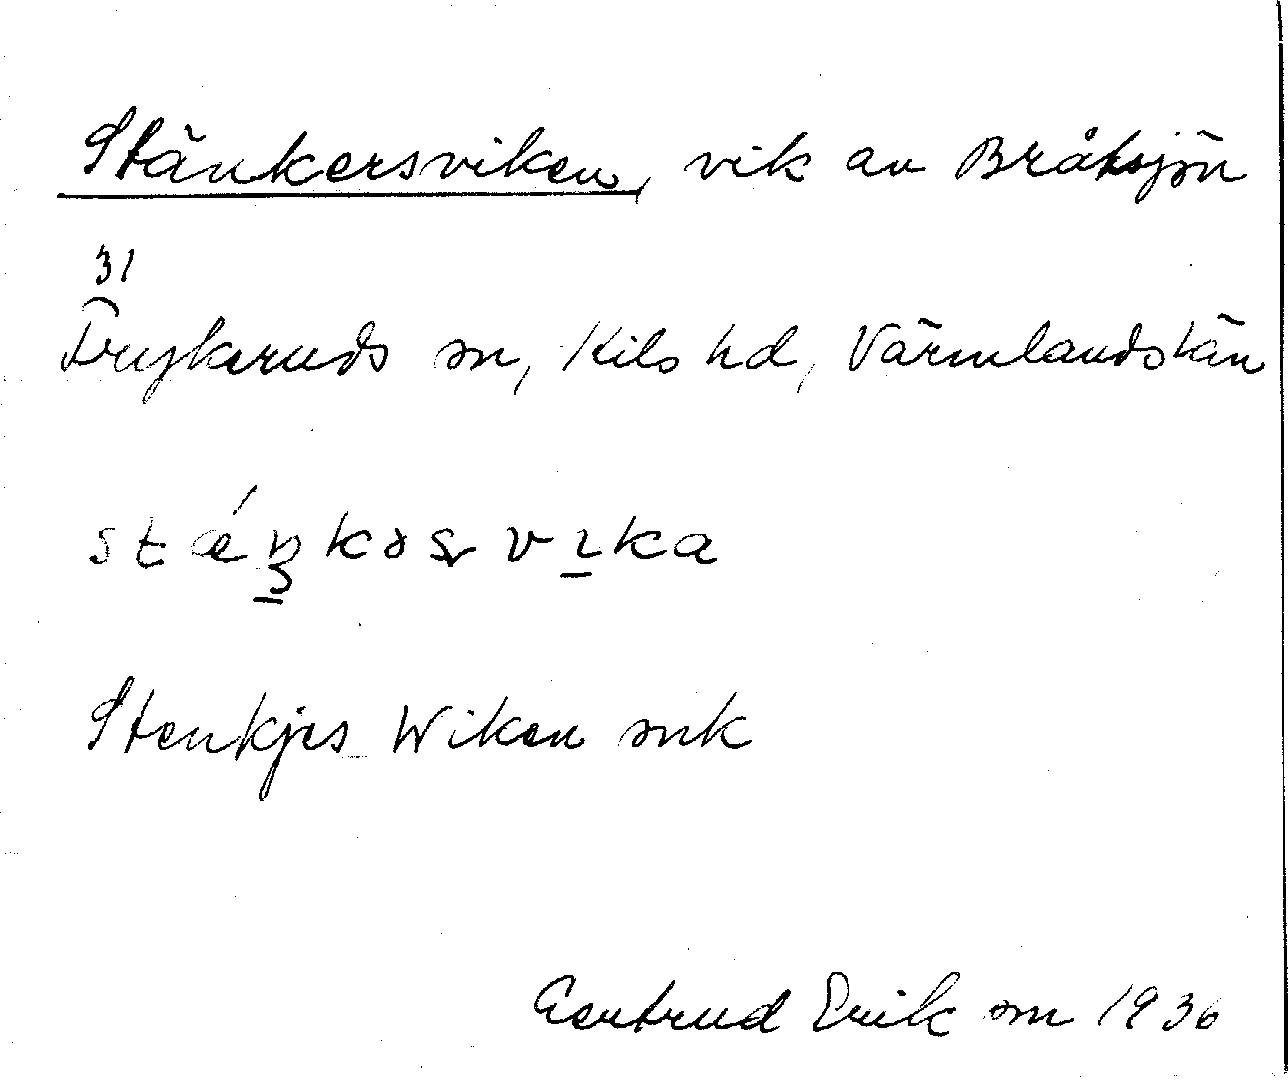 Stänkersviken, vik av Bråtsjön
31
Frykeruds sn, Kils hd, Värmlands län
vika
Stenkjes Wiken snk
Gertrud Erikson 1936